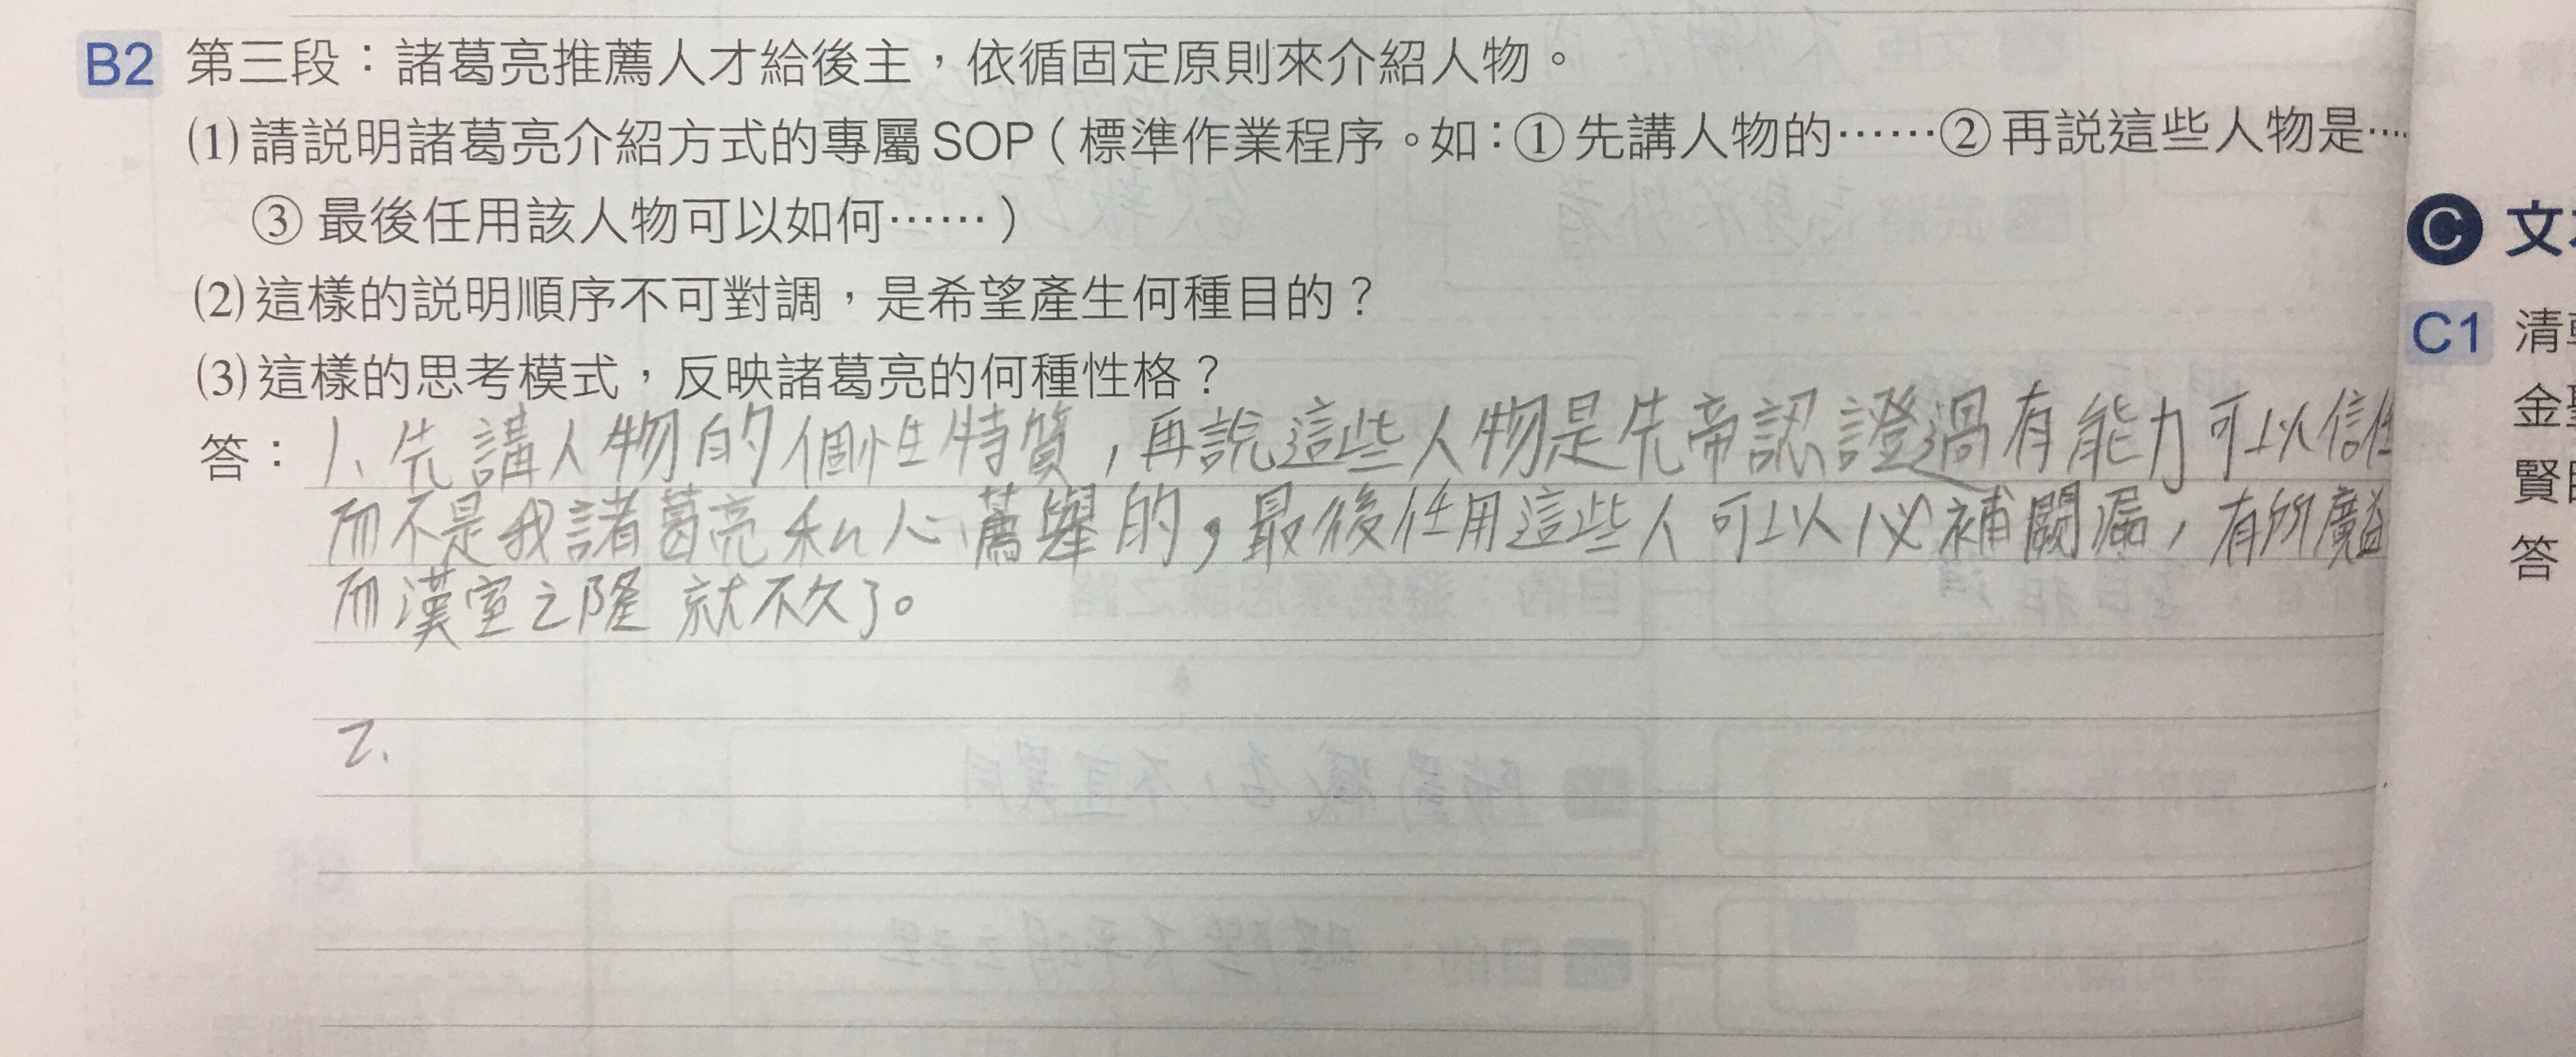 B2 第三段：諸葛亮推薦人才給後主，依循固定原則來介紹人物。
(1)請說明諸葛亮介紹方式的專屬SOP（標準作業程序。如：①先講人物的……②再說這些人物是…
③最後任用該人物可以如何……）
(2)這樣的說明順序不可對調，是希望產生何種目的？
(3)這樣的思考模式，反映諸葛亮的何種性格？
答：1、先講人物的個性特質，再說這些人物是先帝認證過有能力可以信任
而不是我諸葛亮私心薦舉的，最後任用這些人可以必補闕漏，有所廣益
而漢室之隆就不久了。
2、
C 文
C1 清
金
賢
答